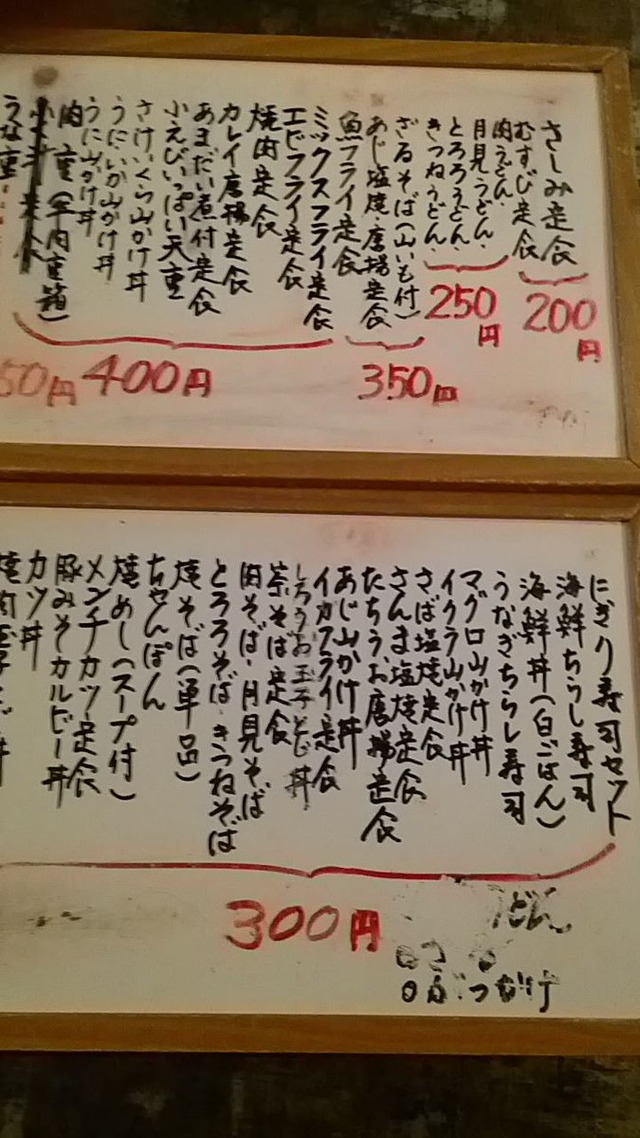 さしみ定食
むすび定食
200円
肉うどん・
月見うどん・
とろろうどん・
きつねうどん・
250円
ざるそば(山いも付)
あじ塩焼・唐揚定食
魚フライ定食
350円
ミックスフライ定食
エビフライ定食
焼肉定食
カレイ唐揚定食
あまだい煮付定食
小えびいっぱい天重
さけ、いくら山かけ丼
うにいか山かけ丼
うに山かけ丼
肉重(牛肉重箱)
400円
うな重
50円
にぎり寿司セット
海鮮ちらし寿司
海鮮丼(白ごはん)
うなぎちらし寿司
マグロ山かけ丼
イクラ山かけ丼
さば塩焼定食
さんま塩焼定食
たちうお唐揚定食
あじ山かけ丼
イカフライ定食
しろうお玉子とじ丼
茶そば定食
肉そば・月見そば
とろろそば・きつねそば
焼そば(単品)
ちゃんぽん
焼めし(スープ付)
メンチカツ定食
豚みそカルビー丼
カツ丼
300円
うどん
ぶっかけ